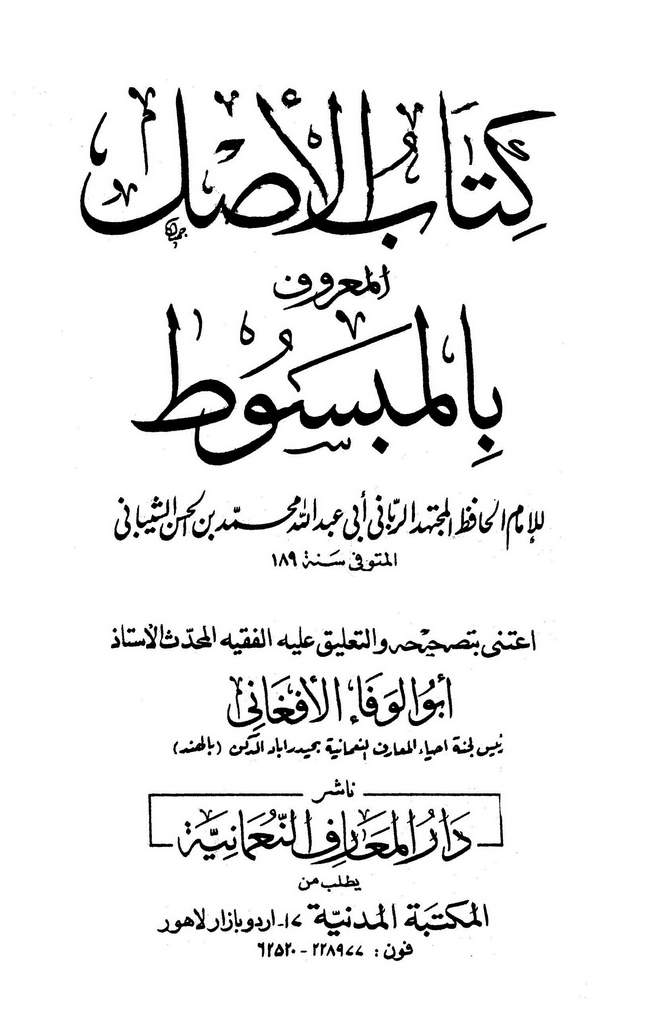 كِتَابُ الأَصْل
المعروف
بِالمَبسُوط
للإمام الحافظ المجتهد الربّاني أبي عبد الله محمّد بن الحسن الشيباني
المتوفى سَنة ١٨٩
اعتنى بتصحيحه والتعليق عليه الفقيه المحدّث الأستاذ
أبو الوفاء الأفغاني
رئيس لجنة احياء المعارف النعمانية بحيدراباد الدكن (بالهند)
ناشر
دَارُ المَعَارِفِ النُّعمَانِيَّة
يطلب من
المكتبة المدنيّة ١٧-اردو بازار لاهور
فون : ٢٢٨٩٧٧ - ٦٢٥٢٠